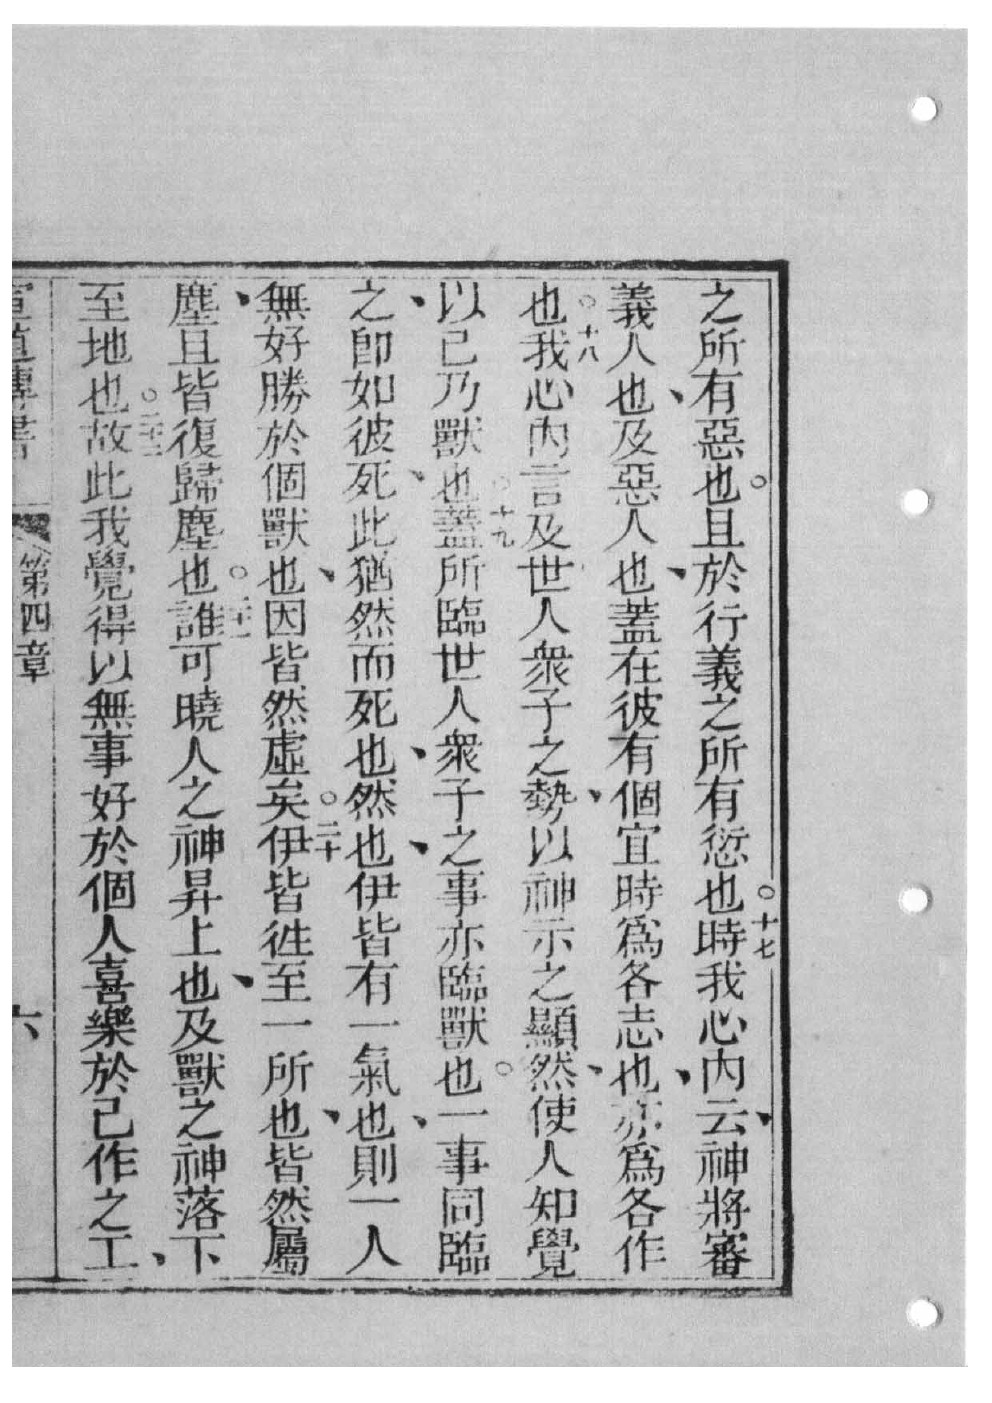 之所有惡也。且於行義之所有愆也。十七時我心內云、神將審
義人也、及惡人也、蓋在彼有個宜時爲各志也、亦爲各作
也。十八我心內言及世人衆子之勢、以神示之顯然、使人知覺
以己乃獸也。十九蓋所臨世人衆子之事亦臨獸也。一事同臨
之、卽如彼死、此猶然而死也、然也、伊皆有一氣也、則一人
無好勝於個獸也、因皆然虛矣。二十伊皆徃至一所也、皆然屬
塵、且皆復歸塵也。二十一誰可曉人之神昇上也、及獸之神落下
至地也。二十二故此我覺得以無事好於個人喜樂於己作之工、
宣道傳書 第四章 六